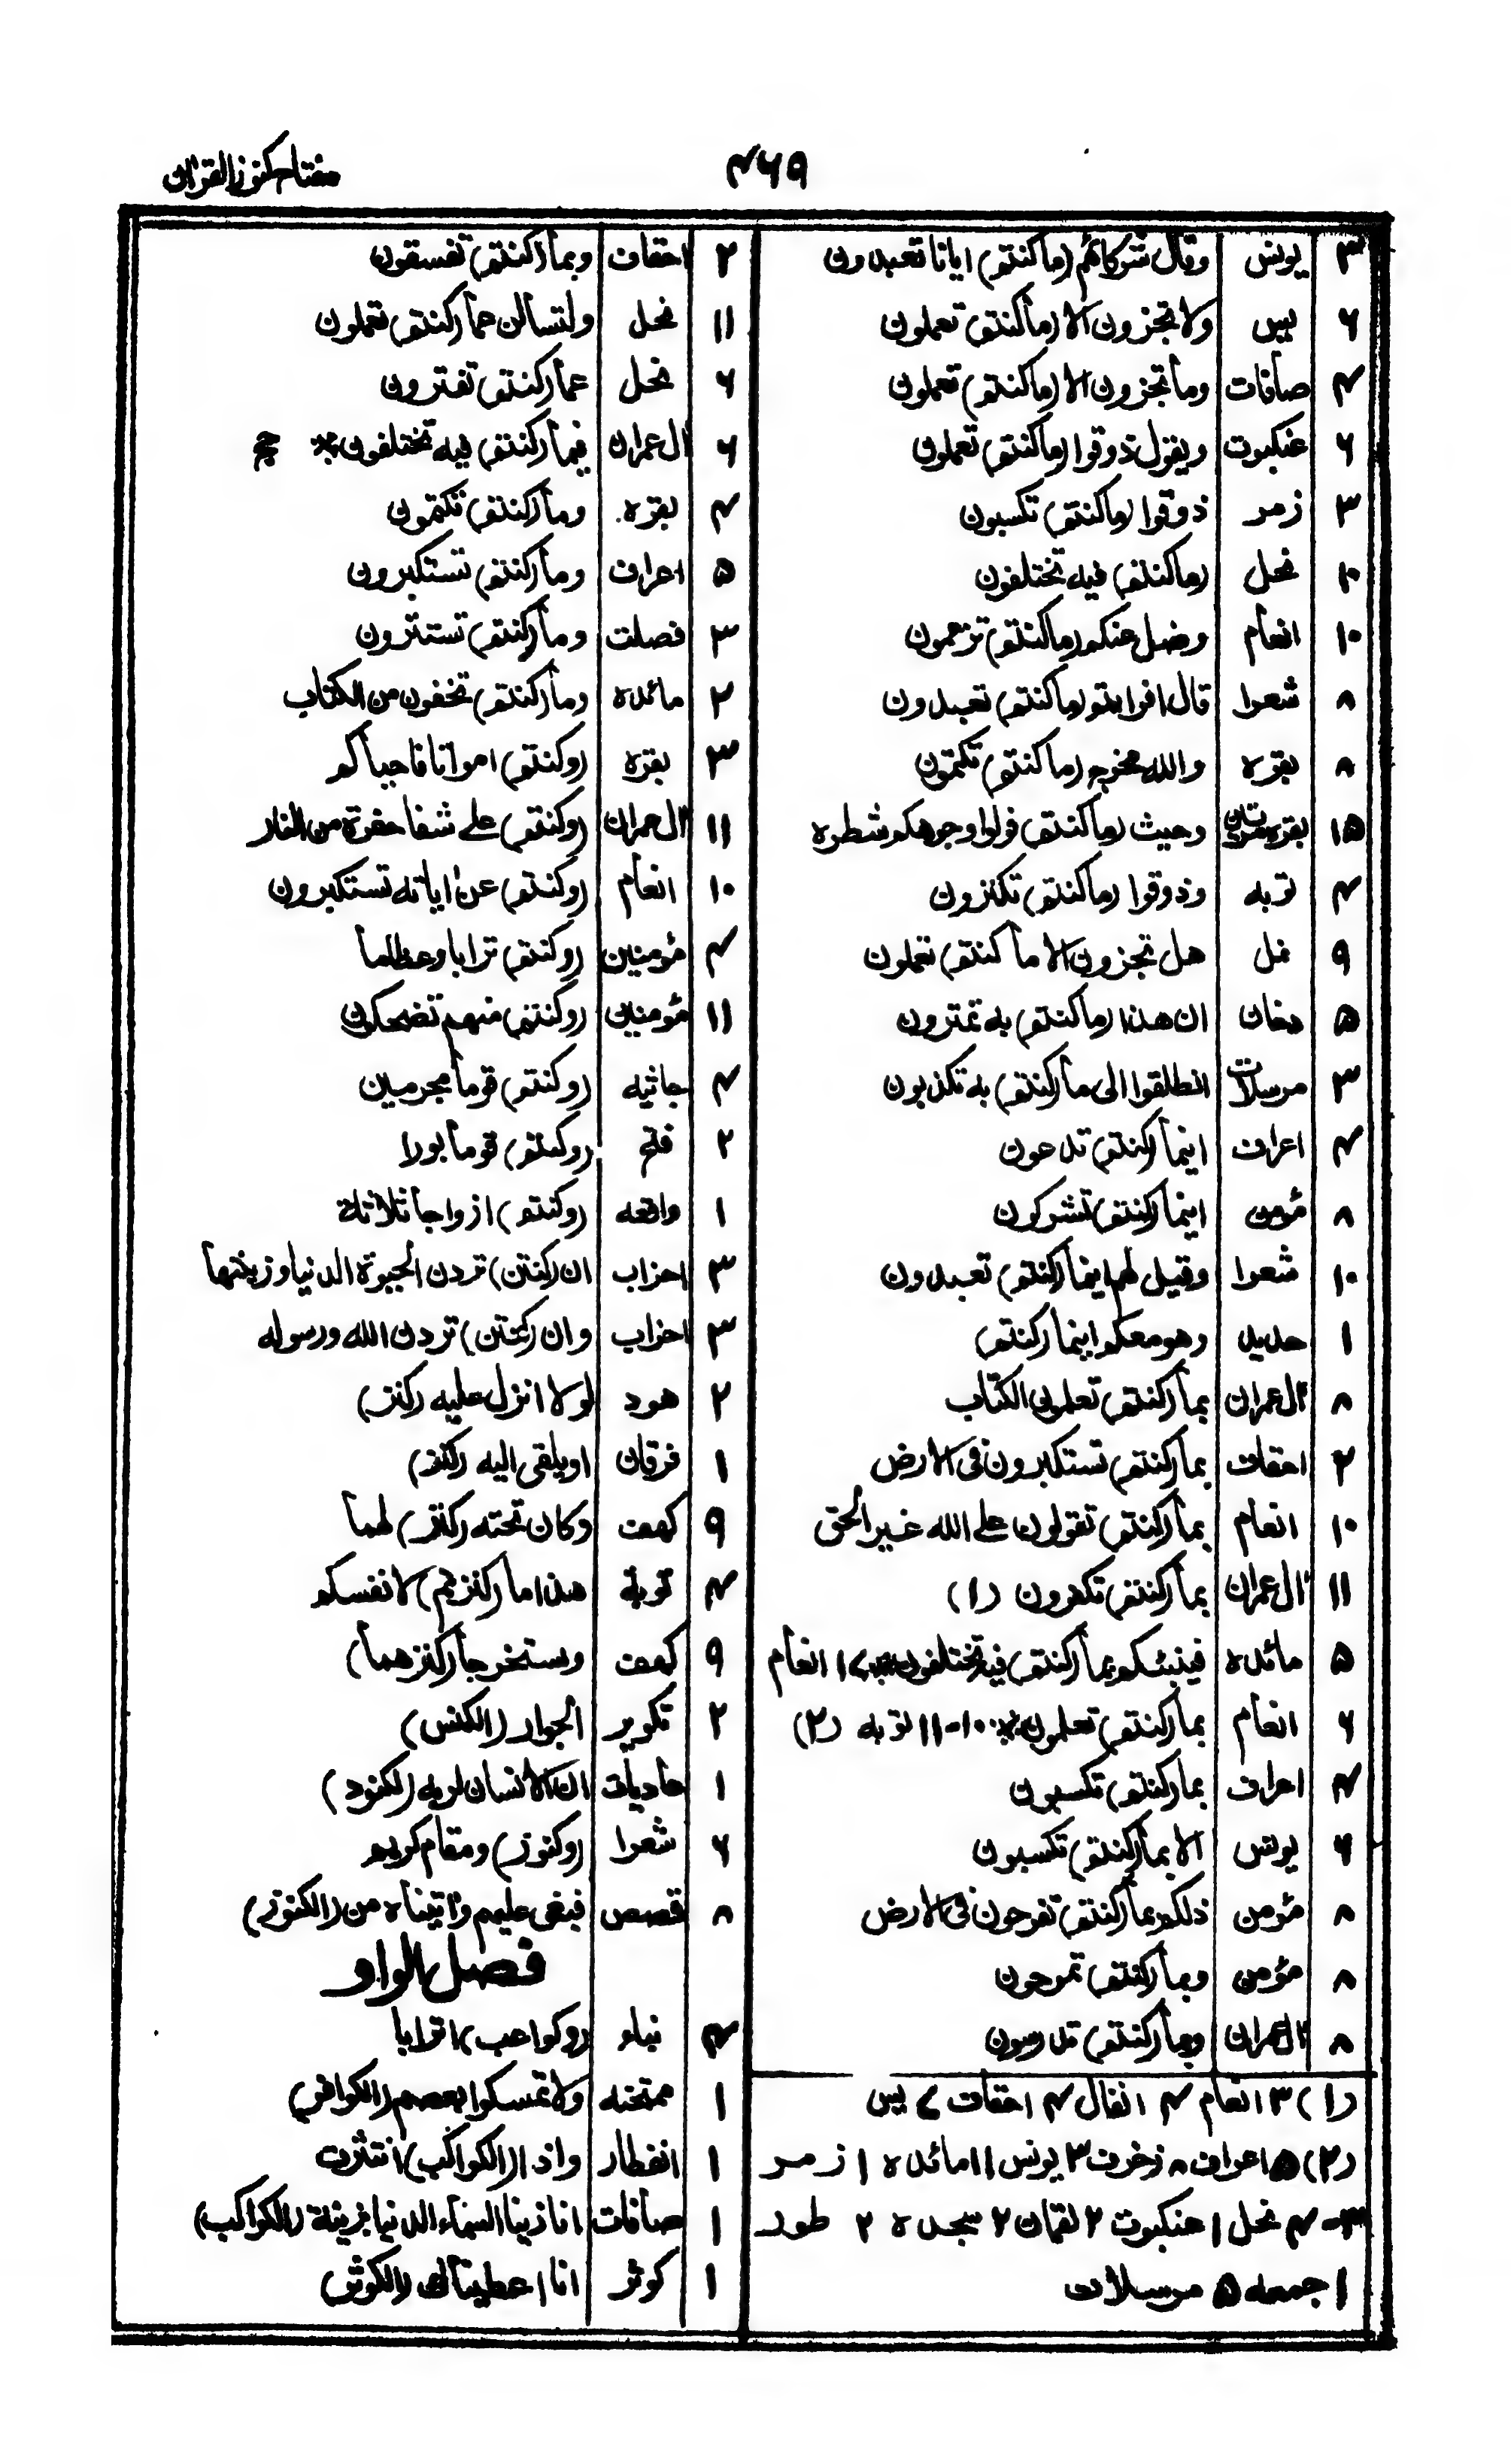 ۴۶۹
مفتاح کنوز القرآن
۳ یونس وقال شرکائهم (ما کنتم) ایانا تعبدون
۶ یس ولا تجزون الا (ما کنتم) تعملون
۴ صافات وما تجزون الا (ما کنتم) تعملون
۶ عنکبوت ویقول ذوقوا (ما کنتم) تعملون
۳ زمر ذوقوا (ما کنتم) تکسبون
۱۰ نحل (ما کنتم) فیه تختلفون
۱۰ انعام وضل عنکم (ما کنتم) تزعمون
۸ شعرا قال افرایتم (ما کنتم) تعبدون
۸ بقره والله مخرج (ما کنتم) تکتمون
۱۵ بقره وحیث (ما کنتم) فولوا وجوهکم شطره
۴ توبه وذوقوا (ما کنتم) تکنزون
۹ نمل هل تجزون الا ما کنتم) تعملون
۵ دخان ان هذا (ما کنتم) به تمترون
۳ مرسلات انطلقوا الی ما (کنتم) به تکذبون
۴ اعراف اینما (کنتم) تدعون
۸ مؤمن اینما (کنتم) تشرکون
۱۰ شعرا وقیل لهم اینما (کنتم) تعبدون
۱ حدید وهو معکم اینما (کنتم)
۸ آل عمران بما (کنتم) تعلمون الکتاب
۲ احقاف بما (کنتم) تستکبرون فی الارض
۱۰ انعام بما (کنتم) تقولون علی الله غیر الحق
۱۱ آل عمران بما (کنتم) تکفرون (۱)
۵ مائده فینبئکم بما (کنتم) فیه تختلفون انعام
۶ انعام بما (کنتم) تعلمون ۱۰-۱۱ توبه (۲)
۴ اعراف بما (کنتم) تکسبون
۶ یونس الا بما (کنتم) تکسبون
۸ مؤمن ذلکم بما (کنتم) تفرحون فی الارض
۸ مؤمن وبما (کنتم) تمرحون
۸ آل عمران وبما (کنتم) تدرسون
(۱) ۳ انعام ۴ انفال ۴ احقاف ۷ یس
(۲) ۵ اعراف ۸ زخرف ۳ یونس ۱۱ مائده ۱ زمر
۳-۴ نحل ۱ عنکبوت ۲ لقمان ۲ سجده ۲ طور
۱ جمعه ۵ مرسلات
۲ احقاف وبما (کنتم) تفسقون
۱۱ نحل ولتسألن عما (کنتم) تعملون
۶ نحل عما (کنتم) تفترون
۶ آل عمران فیما (کنتم) فیه تختلفون حج
۴ بقره وما (کنتم) تکتمون
۵ اعراف وما (کنتم) تستکبرون
۳ فصلت وما (کنتم) تستترون
۲ مائده وما (کنتم) تخفون من الکتاب
۳ بقره (وکنتم) امواتا فاحیاکم
۱۱ آل عمران (وکنتم) علی شفا حفرة من النار
۱۰ انعام (وکنتم) عن ایاته تستکبرون
۴ مؤمنین (وکنتم) ترابا وعظاما
۱۱ مؤمنین (وکنتم) منهم تضحکون
۴ جاثیه (وکنتم) قوما مجرمین
۲ فتح (وکنتم) قوما بورا
۱ واقعه (وکنتم) ازواجا ثلاثة
۳ احزاب ان (کنتن) تردن الحیوة الدنیا وزینتها
۳ احزاب وان (کنتن) تردن الله ورسوله
۲ هود لولا انزل علیه (کنز)
۱ فرقان او یلقی الیه (کنز)
۹ کهف وکان تحته (کنز) لهما
۴ توبة هذا ما (کنزتم) لانفسکم
۹ کهف ویستخرجا (کنزهما)
۲ تکویر الجوار (الکنس)
۱ عادیات ان الانسان لربه (لکنود)
۶ شعرا (وکنوز) ومقام کریم
۸ قصص فبغی علیهم واتیناه من (الکنوز)
فصل الواو
۴ نباء (وکواعب) اترابا
۱ ممتحنه ولا تمسکوا بعصم (الکوافر)
۱ انفطار واذا (الکواکب) انتثرت
۱ صافات انا زینا السماء الدنیا بزینة (الکواکب)
۱ کوثر انا اعطیناک (الکوثر)